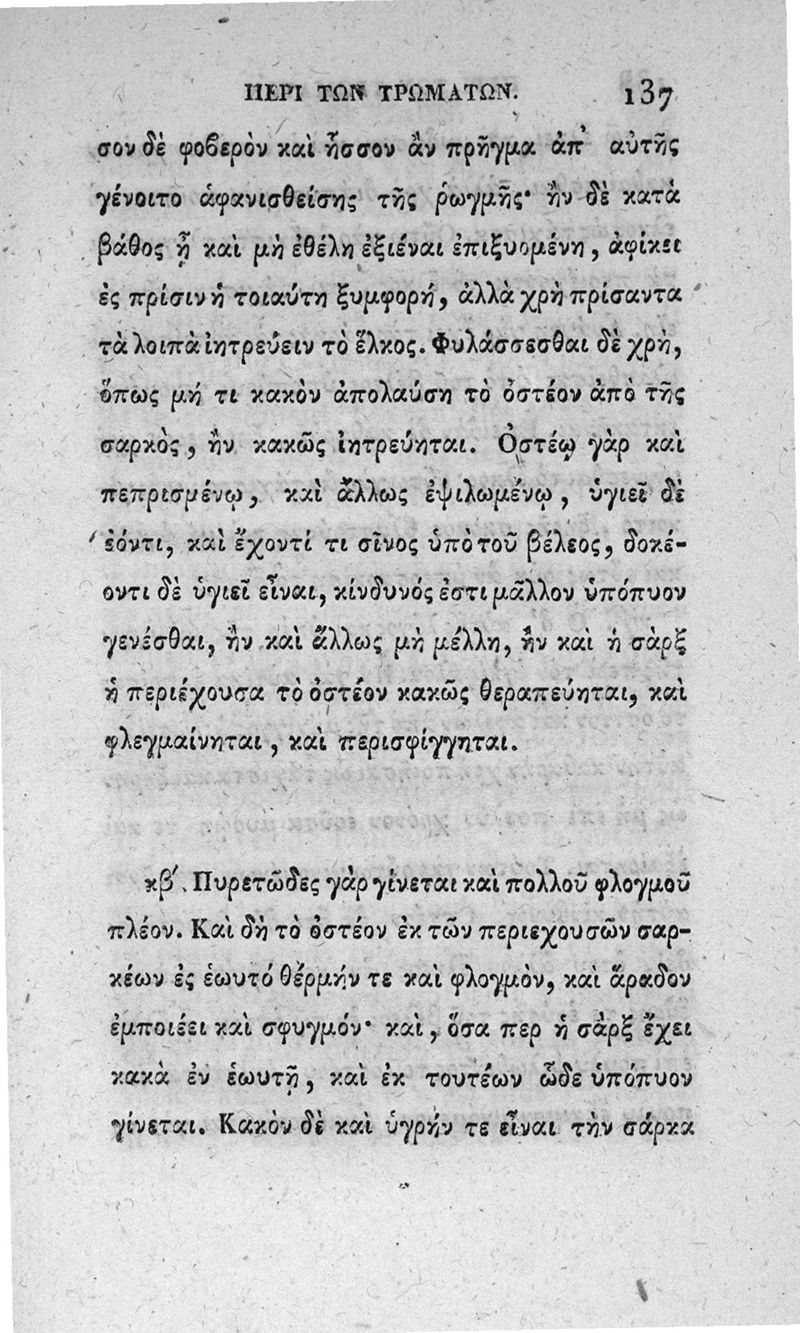 ΠΕΡΙ ΤΩΝ ΤΡΩΜΑΤΩΝ. 137
σον δὲ φοβερὸν καὶ ἧσσον ἂν πρῆγμα ἀπ’ αὐτῆς
γένοιτο ἀφανισθείσης τῆς ῥωγμῆς· ἢν δὲ κατὰ
βάθος ᾖ καὶ μὴ ἐθέλη ἐξιέναι ἐπιξυομένη, ἀφίκει
ἐς πρίσιν ἡ τοιαύτη ξυμφορή, ἀλλὰ χρὴ πρίσαντα
τὰ λοιπὰ ἰητρεύειν τὸ ἕλκος. Φυλάσσεσθαι δὲ χρὴ,
ὅπως μή τι κακὸν ἀπολαύση τὸ ὀστέον ἀπὸ τῆς
σαρκὸς, ἢν κακῶς ἰητρεύηται. Ὀστέῳ γὰρ καὶ
πεπρισμένῳ, καὶ ἄλλως ἐψιλωμένῳ, ὑγιεῖ δὲ
ἐόντι, καὶ ἔχοντί τι σῖνος ὑπὸ τοῦ βέλεος, δοκέ-
οντι δὲ ὑγιεῖ εἶναι, κίνδυνός ἐστι μᾶλλον ὑπόπυον
γενέσθαι, ἢν καὶ ἄλλως μὴ μέλλη, ἢν καὶ ἡ σὰρξ
ἡ περιέχουσα τὸ ὀστέον κακῶς θεραπεύηται, καὶ
φλεγμαίνηται, καὶ περισφίγγηται.
κβ΄. Πυρετῶδες γὰρ γίνεται καὶ πολλοῦ φλογμοῦ
πλέον. Καὶ δὴ τὸ ὀστέον ἐκ τῶν περιεχουσῶν σαρ-
κέων ἐς ἑωυτό θέρμην τε καὶ φλογμὸν, καὶ ἄραδον
ἐμποιέει καὶ σφυγμόν· καὶ, ὅσα περ ἡ σὰρξ ἔχει
κακὰ ἐν ἑωυτῇ, καὶ ἐκ τουτέων ὧδε ὑπόπυον
γίνεται. Κακὸν δὲ καὶ ὑγρήν τε εἶναι τὴν σάρκα